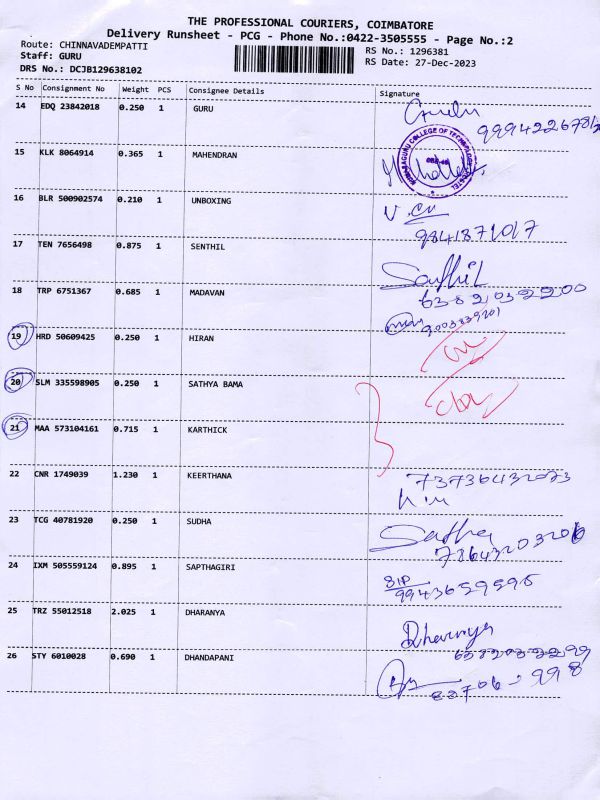 THE PROFESSIONAL COURIERS, COIMBATORE
Delivery Runsheet - PCG - Phone No.:0422-3505555 - Page No.:2
Route: CHINNAVADEMPATTI RS No.: 1296381
Staff: GURU RS Date: 27-Dec-2023
DRS No.: DCJB129638102
S No Consignment No Weight PCS Consignee Details Signature
14 EDQ 23842018 0.250 1 GURU
15 KLK 8064914 0.365 1 MAHENDRAN
COLLEGE OF TECHNOLOGY
16 BLR 500902574 0.210 1 UNBOXING
17 TEN 7656498 0.875 1 SENTHIL
9841871017
18 TRP 6751367 0.685 1 MADAVAN
6382032200
19 HRD 50609425 0.250 1 HIRAN
9003839201
20 SLM 335598905 0.250 1 SATHYA BAMA
21 MAA 573104161 0.715 1 KARTHICK
22 CNR 1749039 1.230 1 KEERTHANA
23 TCG 40781920 0.250 1 SUDHA
24 IXM 505559124 0.895 1 SAPTHAGIRI
9943659595
25 TRZ 55012518 2.025 1 DHARANYA
Dharanya
26 STY 6010028 0.690 1 DHANDAPANI